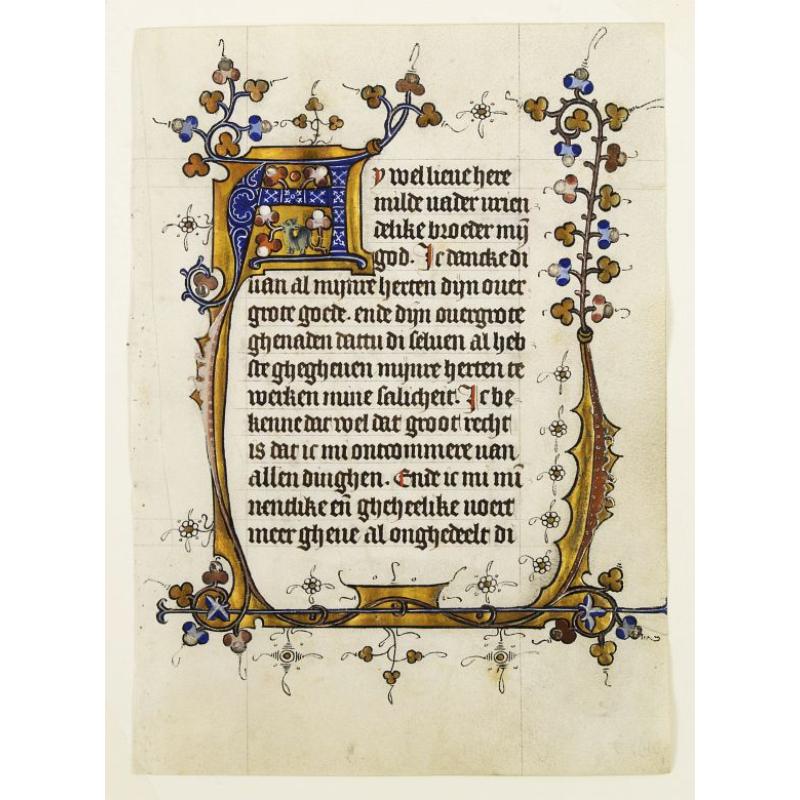 Ay wel lieue here
milde uader urien
delike broeder mij̄
god. Ic dancke di
uan al mijnre herten dijn ouer
grote goede. ende dijn ouergrote
ghenaden dattu di seluen al heb
ste ghegheuen mijnre herten te
werken mine salicheit. Ic be
kenne dat wel dat groot recht
is dat ic mi ontcommere uan
allen dinghen. Ende ic mi mī
nentlike eñ gheheelike uoert
meer gheue al onghedeelt di